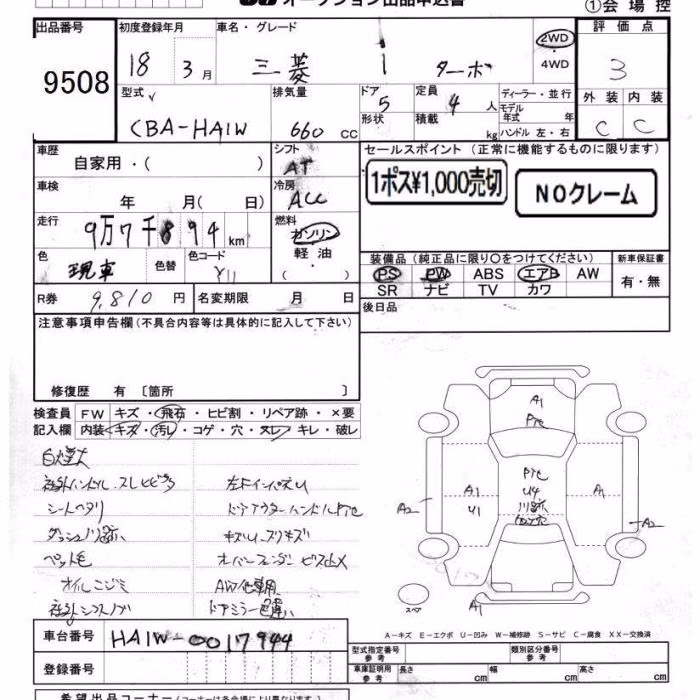 オークション出品申込書 ①会場控
出品番号 初度登録年月 車名・グレード 評価点
9508 18 3月 三菱 i ターボ 2WD ・ 4WD 3
型式 排気量 ドア 5 定員 4人 ディーラー・並行 外装 内装
モデル年式 年
CBA-HA1W 660cc 形状 積載 kg ハンドル 左・右 C C
車歴 シフト セールスポイント(正常に機能するものに限ります)
自家用・( ) AT
1ポス¥1,000売切 NOクレーム
車検 冷房
年 月( 日) ACC
走行 燃料
9万7千894km ガソリン
軽油
・( )
色 色替 色コード 装備品(純正品に限り○をつけてください) 新車保証書
現車 Y11 PS PW ABS エアB AW 有・無
SR ナビ TV カワ
R券 9,810円 名変期限 月 日 後日品
注意事項申告欄(不具合内容等は具体的に記入して下さい)
修復歴 有〔箇所 〕
検査員 FW キズ・飛石・ヒビ割・リペア跡・×要
記入欄 内装 キズ・汚レ・コゲ・穴・スレ・キレ・破レ
社外ハンドル スレヒビ
シートヘタリ ドアアウターハンドルPテ
ダッシュノリ跡 キズU スリキズ
ペット毛
オイルニジミ
社外シフトノブ ドアミラー色違い
A1
A1 U4 A1
A2 U1 ノリ跡 A2
スペア A1
A-キズ E-エクボ U-凹み W-補修跡 S-サビ C-腐食 XX-交換済
車台番号 HA1W-0017944 型式指定番号 参考 類別区分番号 参考
登録番号 車庫証明用 参考 長さ cm 幅 cm 高さ cm
希望出品コーナー(コーナーは各会場により異なります。)